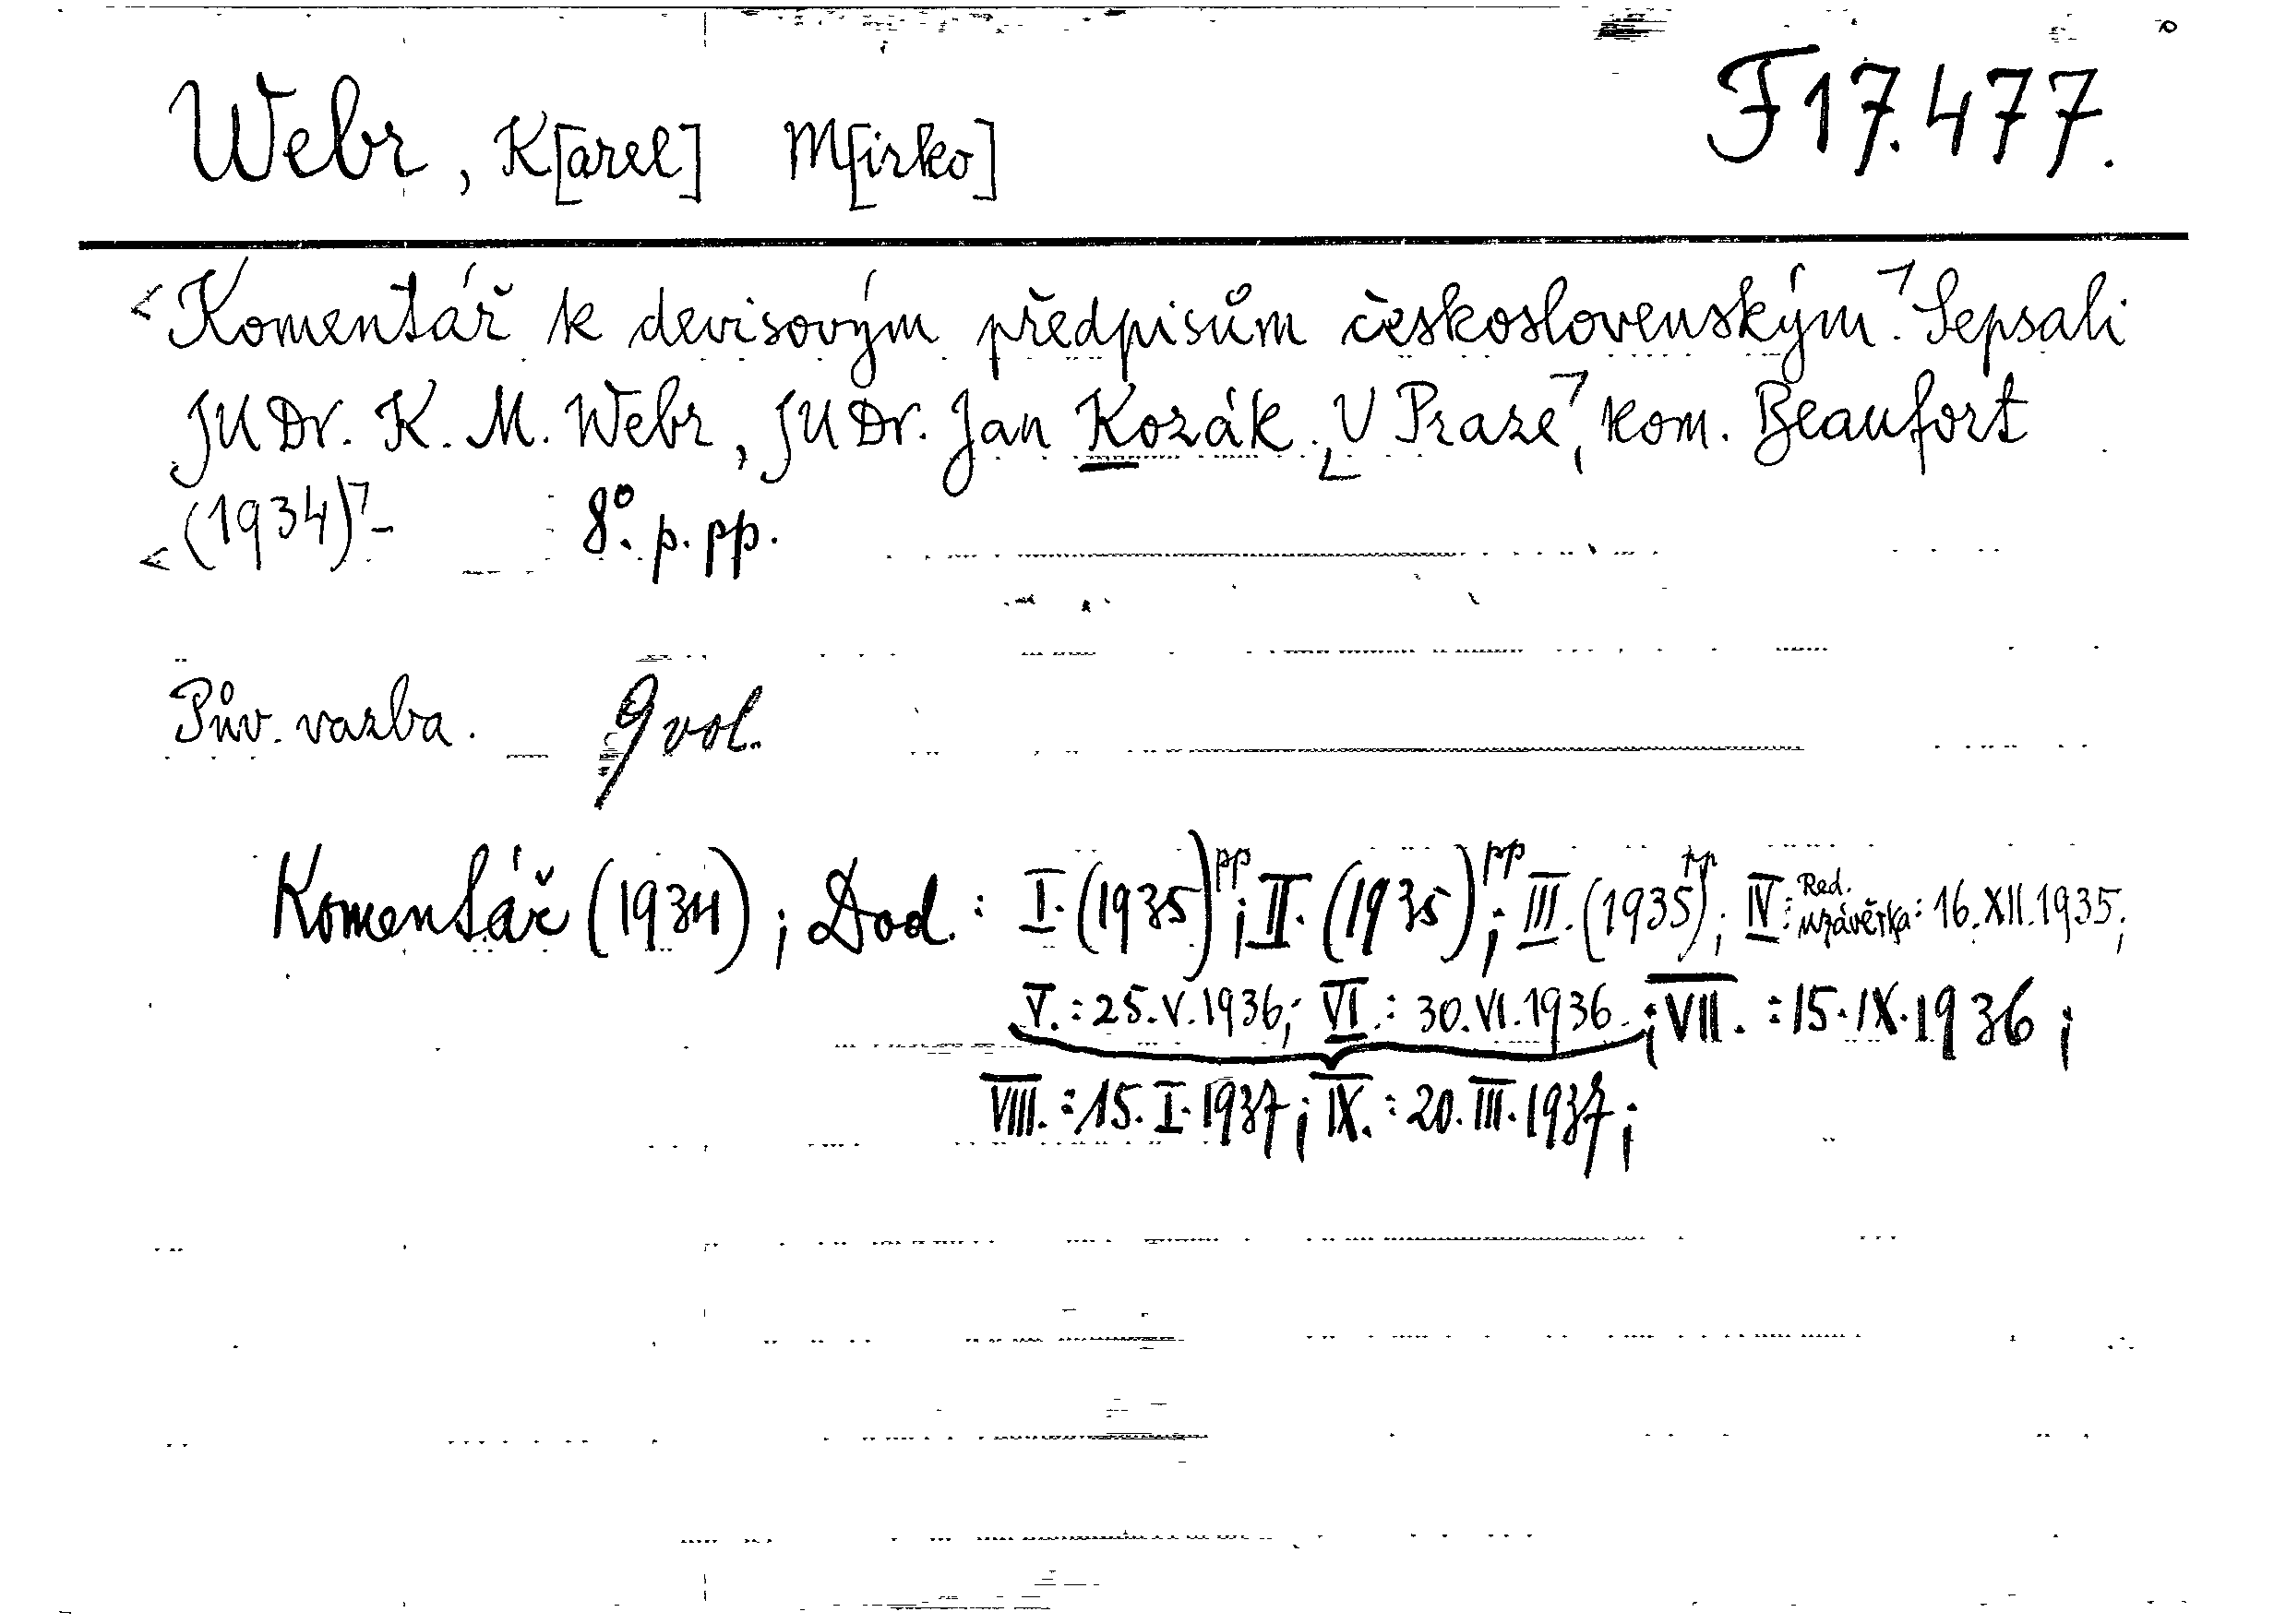 Webr, K[arel] M[irko] F 17.477.
<Komentář k devisovým předpisům československým.⌝ Sepsali
JUDr. K. M. Webr, JUDr. Jan Kozák. ⌞V Praze⌝, kom. Beaufort
<(1934)⌝- 8°. p. pp.
Pův. vazba. 9 vol.
Komentář (1934); Dod.: I. (1935)pp; II. (1935)pp; III. (1935)pp; IV.: Red. uzávěrka: 16.XII.1935;
V.: 25.V.1936; VI.: 30.VI.1936.; VII.: 15.IX.1936;
VIII.: 15.I.1937; IX.: 20.III.1937;